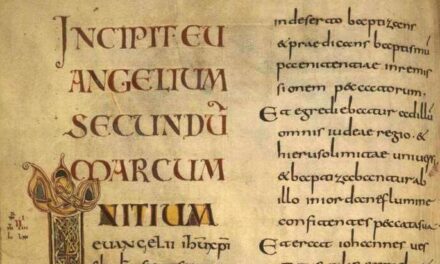 INCIPIT EU
ANGELIUM
SECUNDŪ
MARCUM
INITIUM
evangelii ihuxpi
in deserto baptizans
& praedicans baptismū
paenitentiae in remis
sionem peccatorum.
Et egrediebatur ad illū
omnis iudeae regio. &
hierusolimitae univers
& baptizabantur ab
illo in iordane flumine
confitentes peccata sua
Et erat iohannes ves